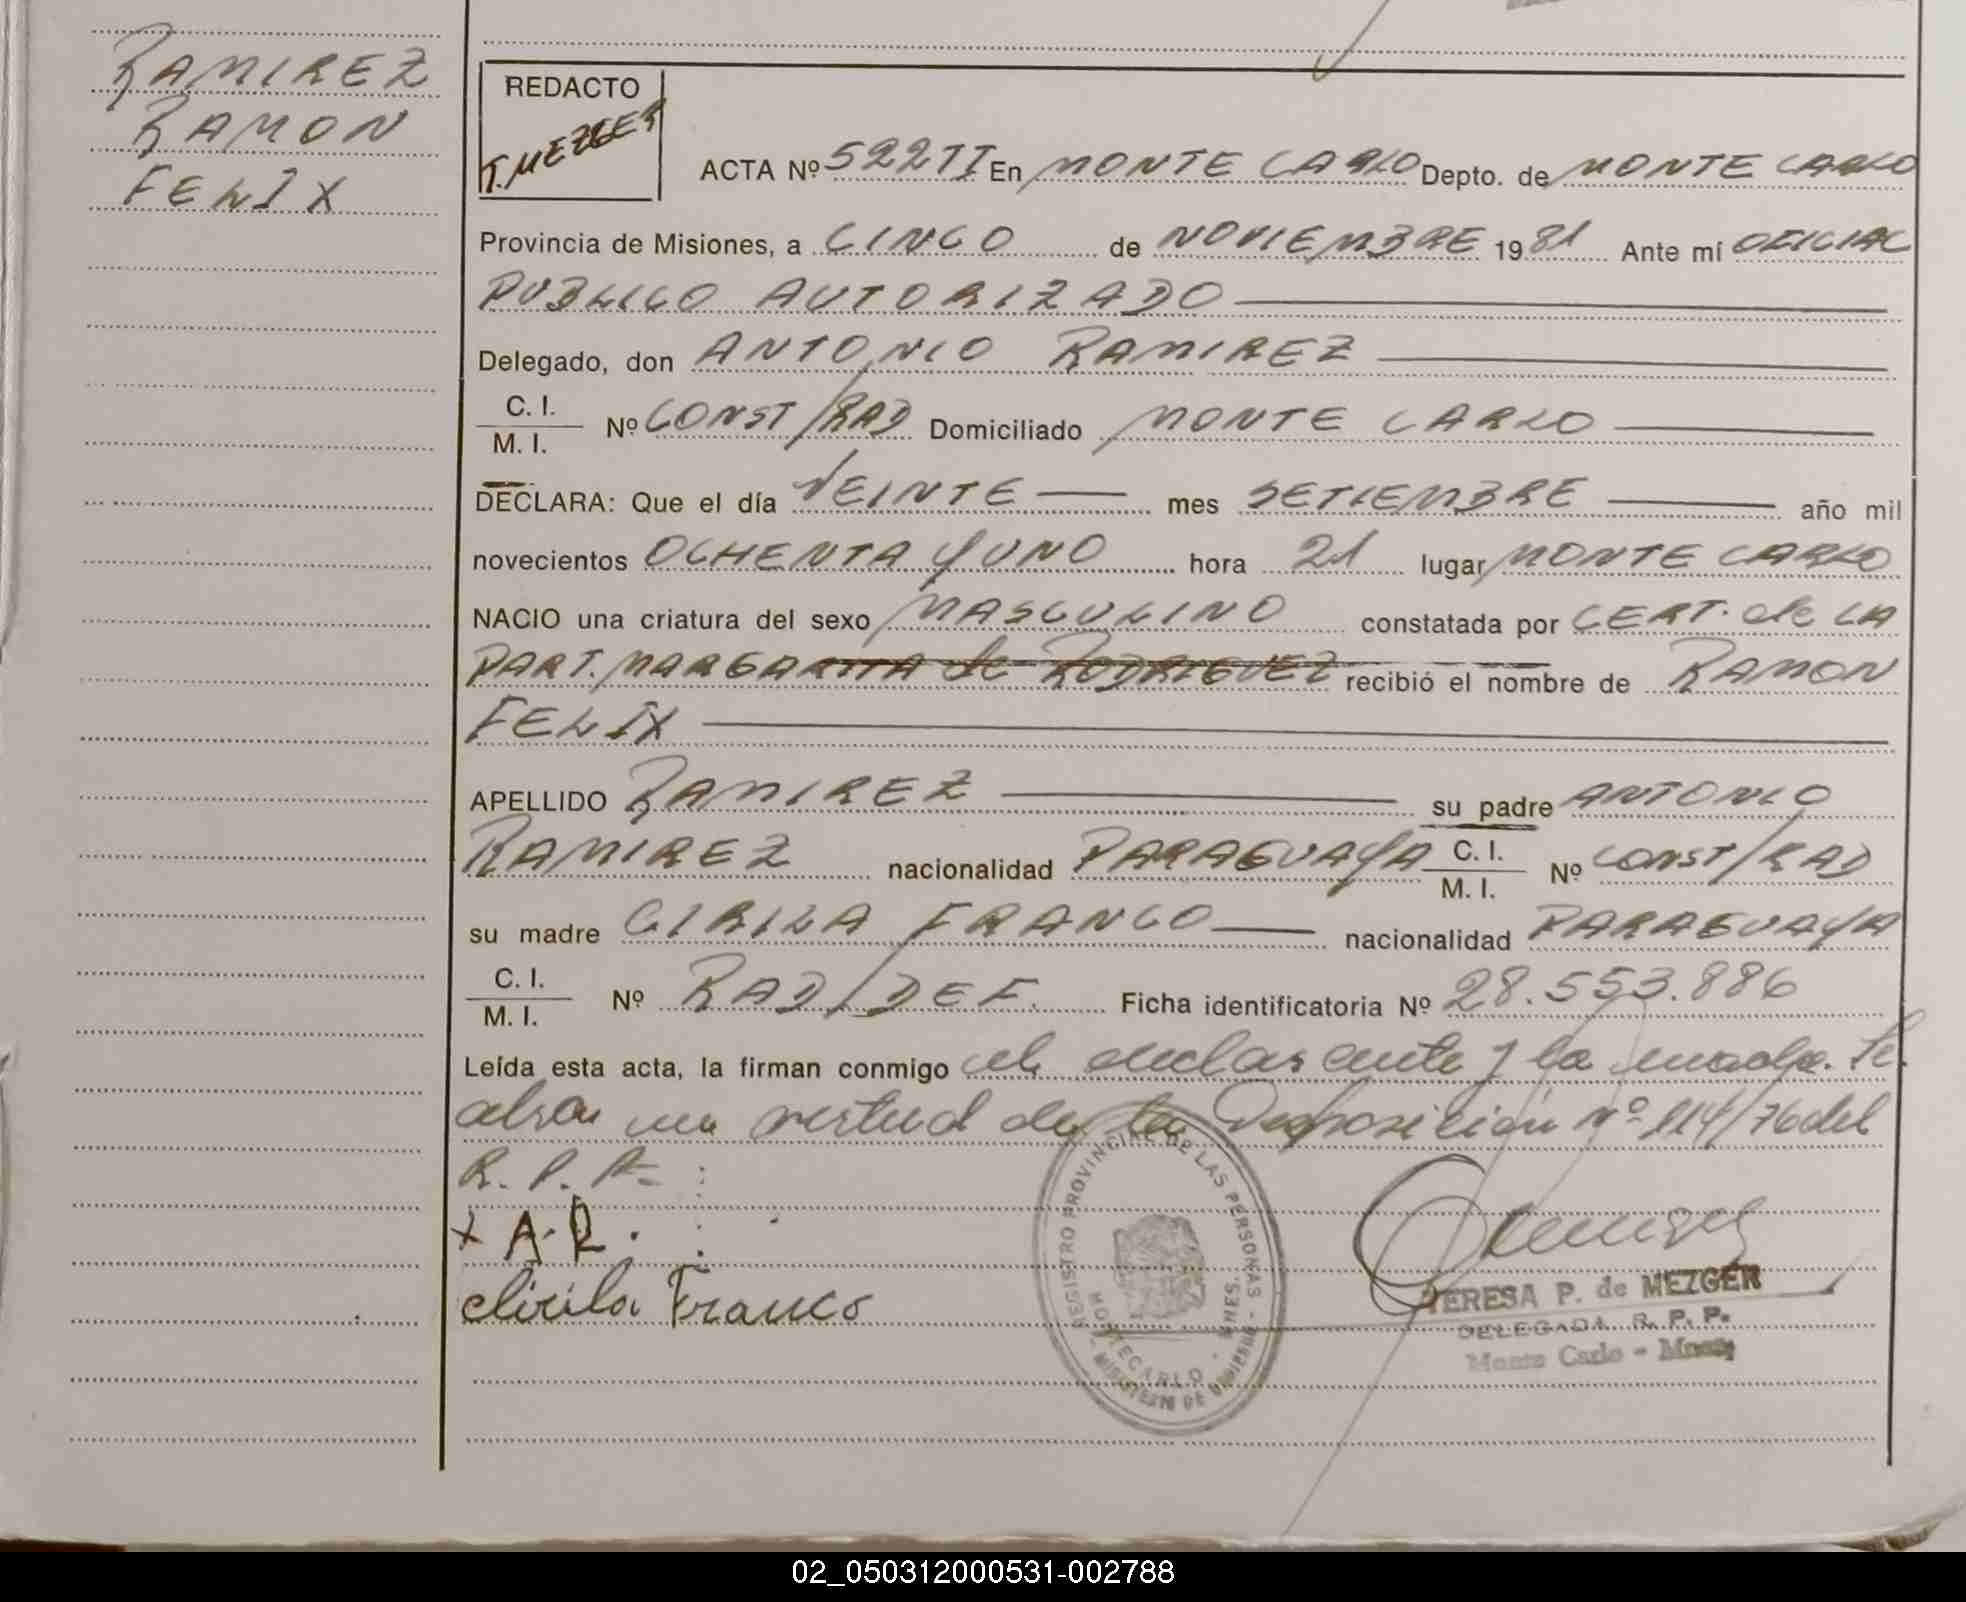 RAMIREZ
RAMON
FELIX
REDACTO
T. MEZGER
ACTA Nº 522 TI En MONTE CARLO Depto. de MONTE CARLO
Provincia de Misiones, a CINCO de NOVIEMBRE 1981 Ante mí OFICIAL
PUBLICO AUTORIZADO
Delegado, don ANTONIO RAMIREZ
C. I.
M. I. Nº CONST/RAD Domiciliado MONTE CARLO
DECLARA: Que el día VEINTE mes SETIEMBRE año mil
novecientos OCHENTA y UNO hora 21 lugar MONTE CARLO
NACIO una criatura del sexo MASCULINO constatada por CERT. de LA
PART. MARGARITA de RODRIGUEZ recibió el nombre de RAMON
FELIX
APELLIDO RAMIREZ su padre ANTONIO
RAMIREZ nacionalidad PARAGUAYA C. I. M. I. Nº CONST/RAD
su madre CIRILA FRANCO nacionalidad PARAGUAYA
C. I.
M. I. Nº RAD/DEF. Ficha identificatoria Nº 28.553.886
Leída esta acta, la firman conmigo el declarante y la madre. Se
labra en virtud de la Disposición Nº 114/76 del
R. P. P.
x A. R.
Cirila Franco
REGISTRO PROVINCIAL DE LAS PERSONAS
MONTECARLO - MNES.
TERESA P. de MEZGER
DELEGADA R. P. P.
Monte Carlo - Mnes
02_050312000531-002788